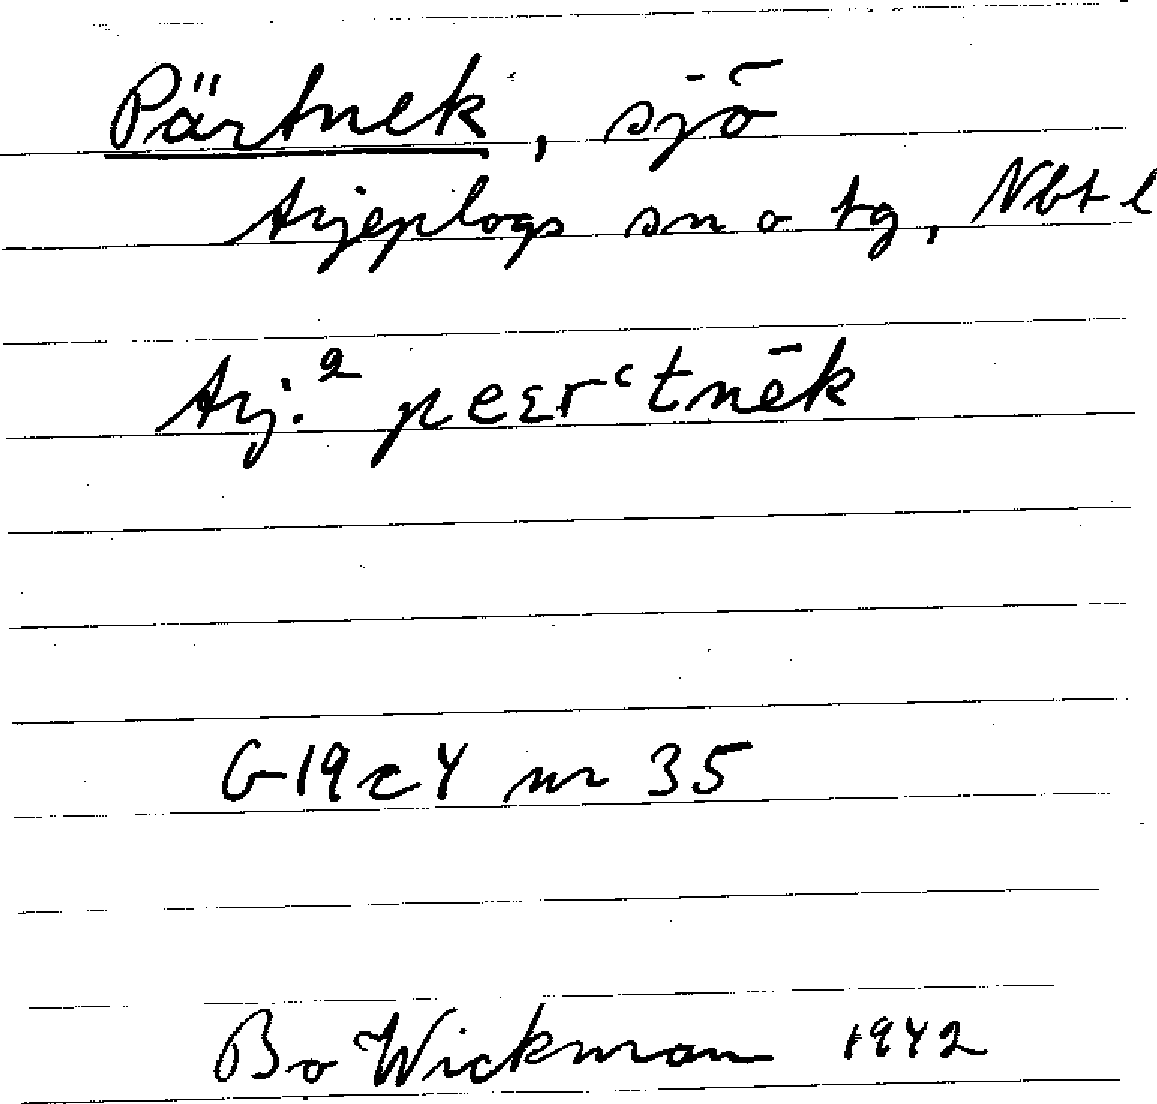 Pärtnek, sjö
Arjeplogs sn o tg, Nbt l
Arj.² peεrʿtnēk
G 19 c 4 nr 35
Bo Wickman 1942